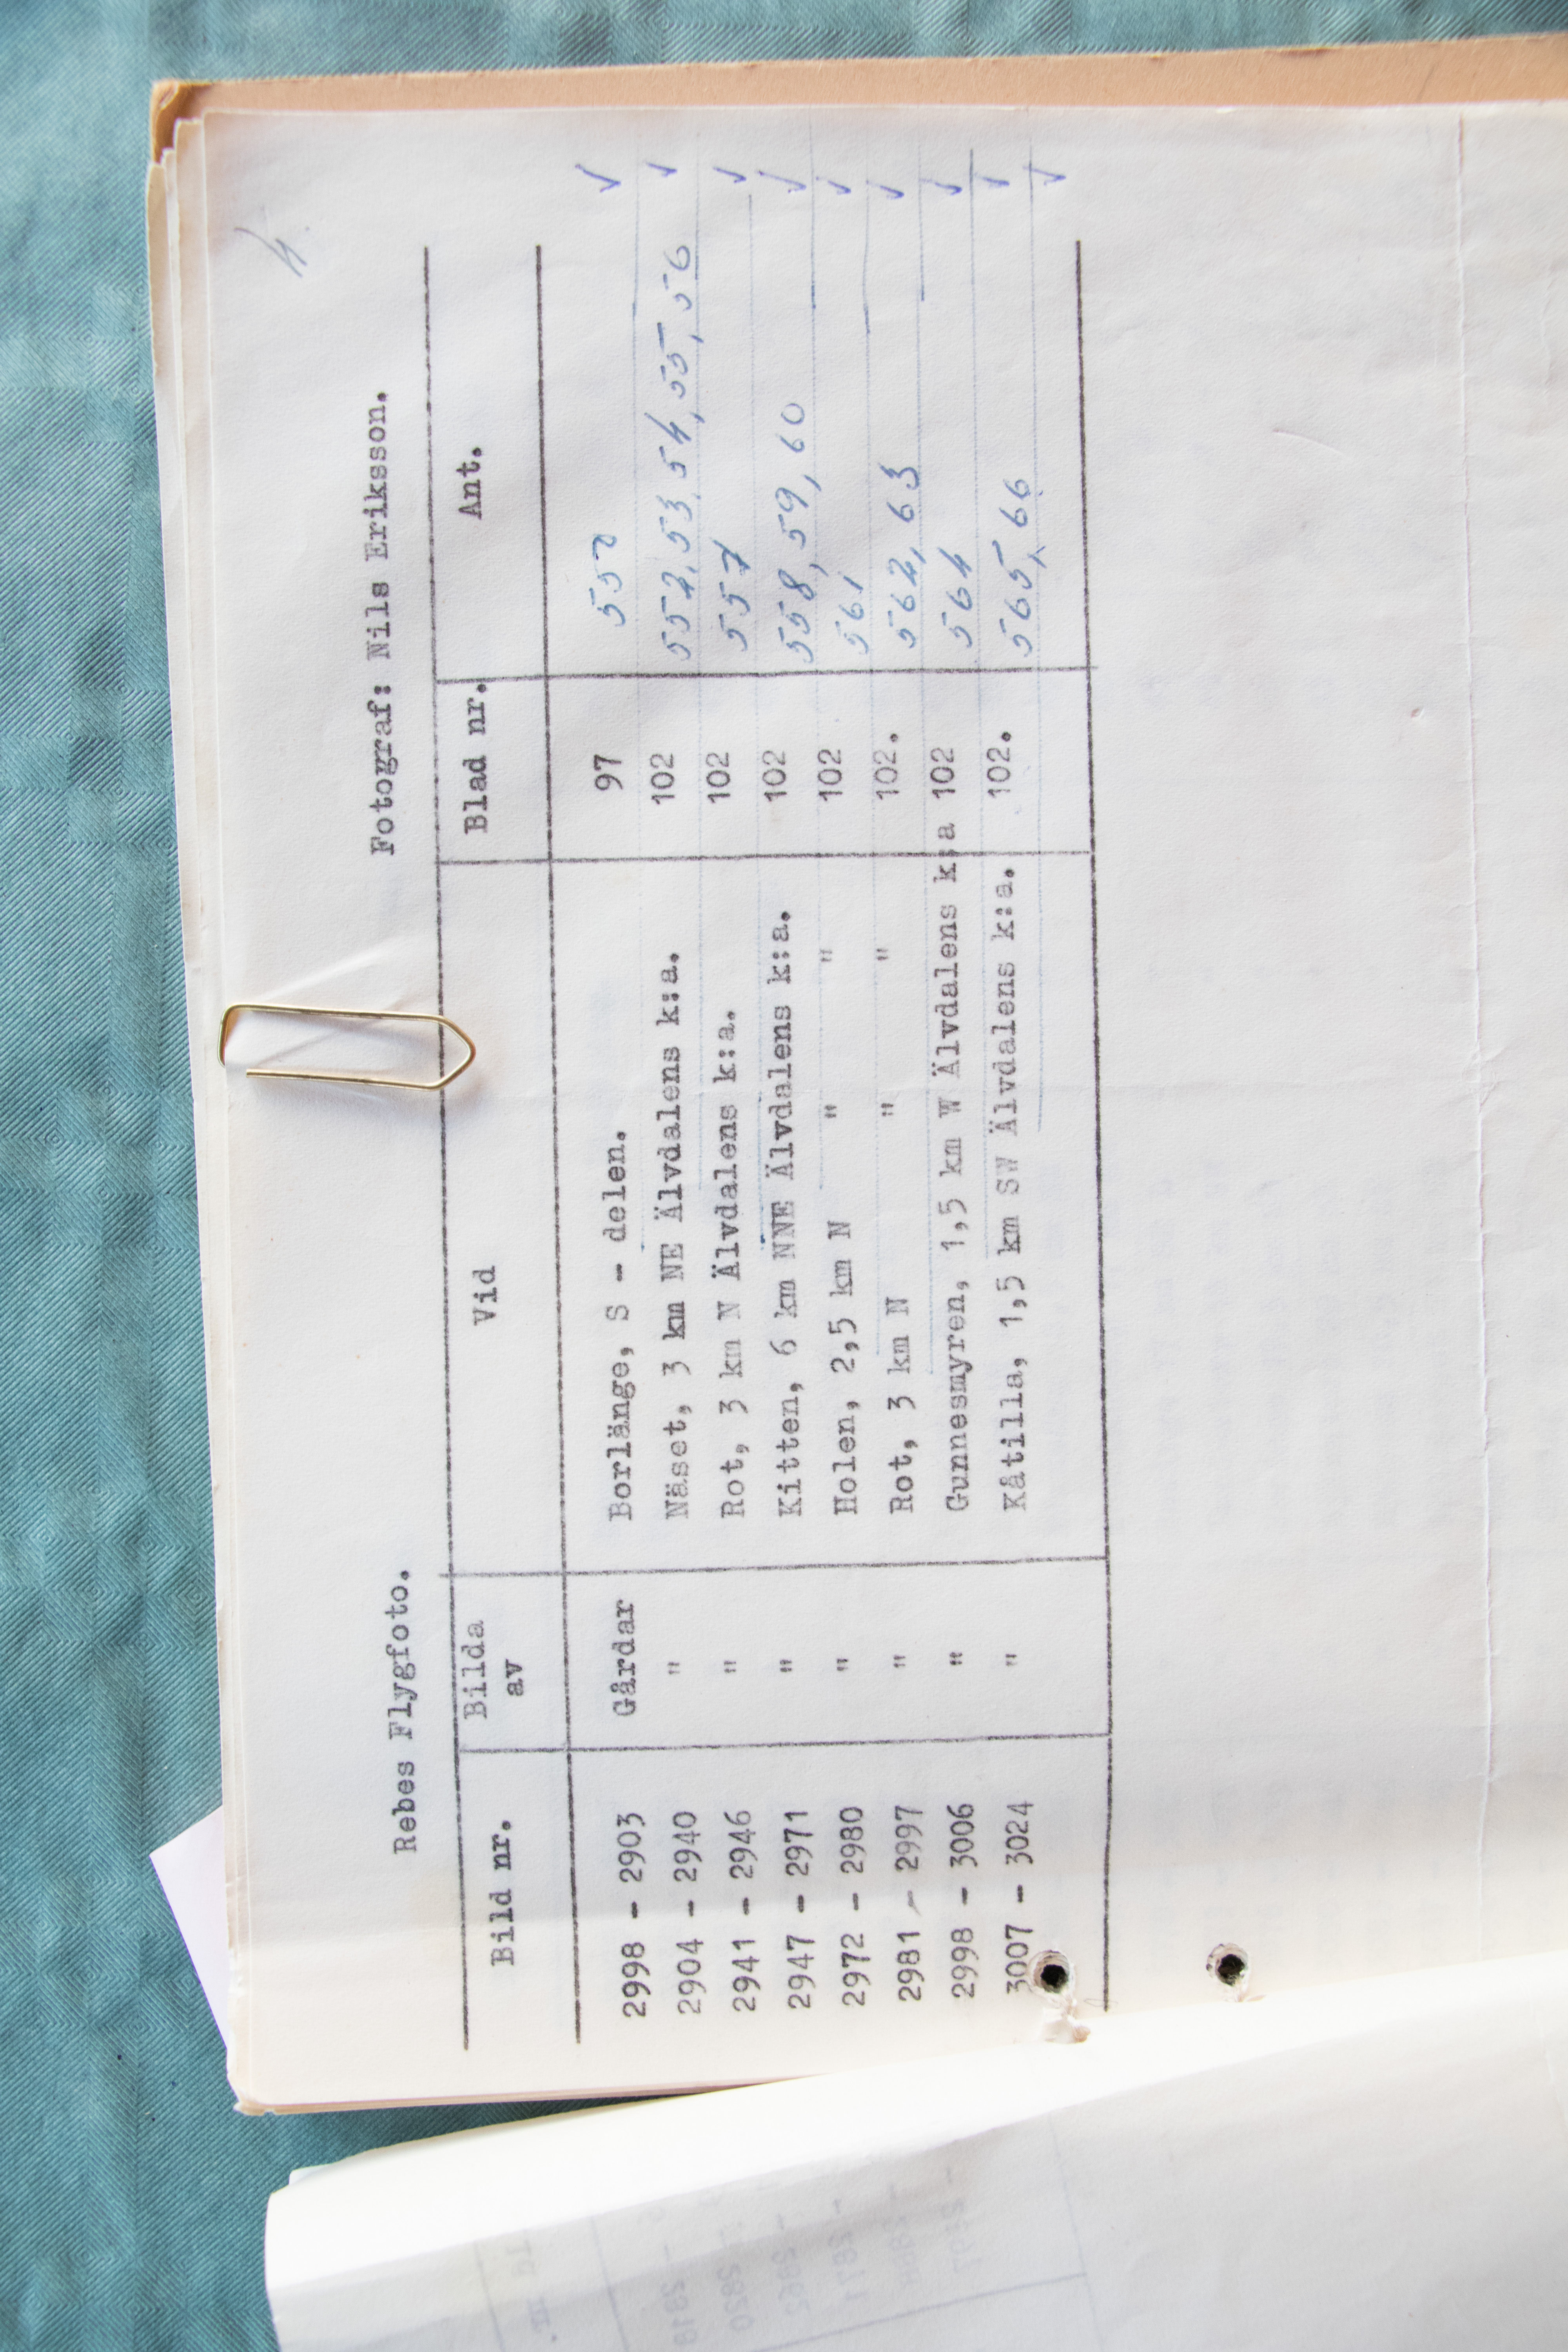 4
Rebes Flygfoto. Fotograf: Nils Eriksson.
Bild nr. Bilda av Vid Blad nr. Ant.
2998 - 2903 Gårdar Borlänge, S - delen. 97 ✓
2904 - 2940 " Näset, 3 km NE Älvdalens k:a. 102 552, 53, 54, 55, 56 ✓
2941 - 2946 " Rot, 3 km N Älvdalens k:a. 102 557 ✓
2947 - 2971 " Kitten, 6 km NNE Älvdalens k:a. 102 558, 59, 60 ✓
2972 - 2980 " Holen, 2,5 km N " " 102 561 ✓
2981 - 2997 " Rot, 3 km N " " 102. 562, 63 ✓
2998 - 3006 " Gunnesmyren, 1,5 km W Älvdalens k:a 102 564 ✓
3007 - 3024 " Kåtilla, 1,5 km SW Älvdalens k:a. 102. 565, 66 ✓
✓